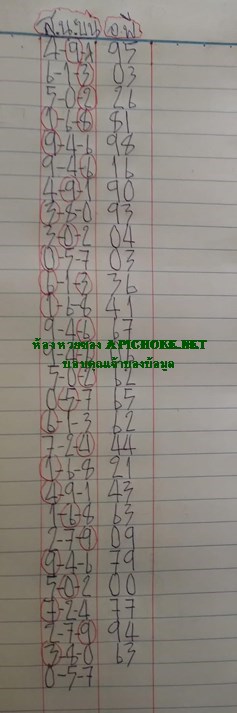 ส.น.บน อ.พี
4-9-1 95
6-1-3 03
5-0-2 26
1-6-8 81
9-4-6 98
9-4-6 16
4-9-1 90
3-8-0 93
3-0-2 04
0-5-7 03
6-1-3 36
1-6-8 41
9-4-6 67
ห้องหวยของ APICHOKE.NET
ขอบคุณเจ้าของข้อมูล
5-0-2 62
0-5-7 65
6-1-3 62
7-2-4 44
1-6-8 21
4-9-1 43
1-6-8 63
2-7-9 09
9-4-6 79
5-0-2 00
7-2-4 77
2-7-9 94
3-4-0 63
0-5-7